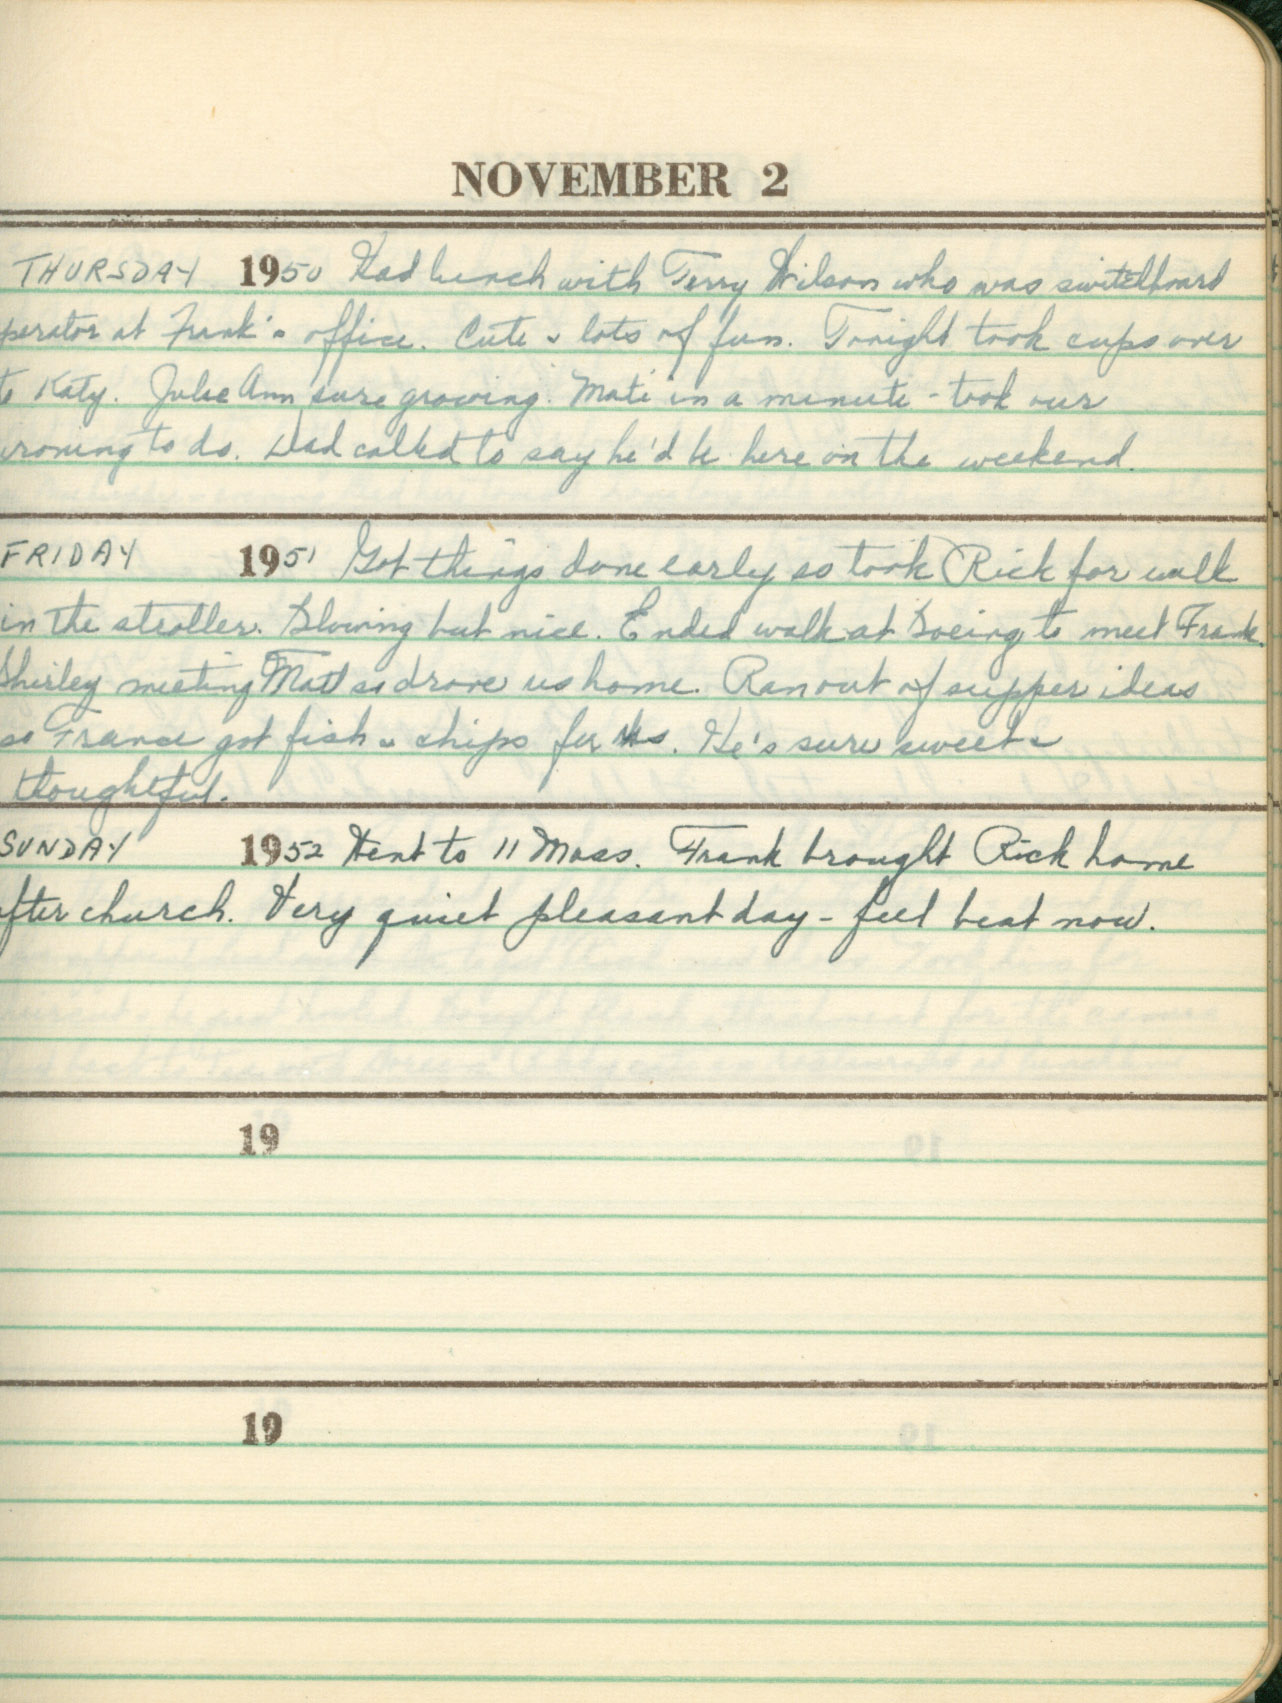 NOVEMBER 2
THURSDAY 1950 Had lunch with Terry Wilson who was switchboard
perator at Frank's office. Cute & lots of fun. Tonight took cups over
to Katy. Julie Ann sure growing. Mati in a minute - took our
ironing to do. Dad called to say he'd be here on the weekend.
FRIDAY 1951 Got things done early so took Rick for walk
in the stroller. Blowing but nice. Ended walk at Boeing to meet Frank.
Shirley meeting Matt so drove us home. Ran out of supper ideas
so France got fish & chips for us. He's sure sweet &
thoughtful.
SUNDAY 1952 Went to 11 Mass. Frank brought Rick home
fter church. Very quiet pleasant day - feel beat now.
19
19